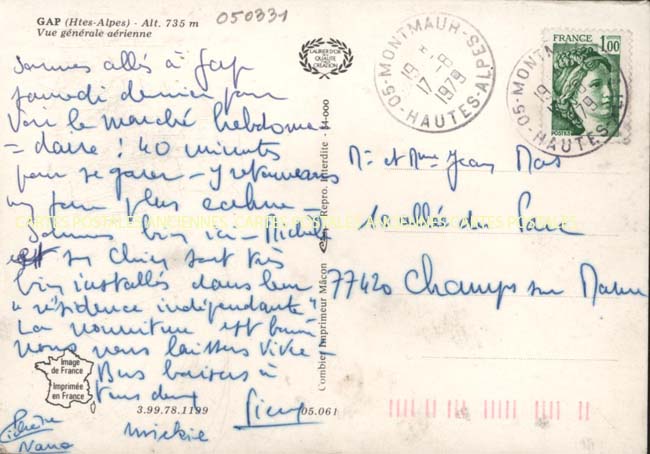 GAP (Htes-Alpes) - Alt. 735 m
Vue générale aérienne
050331
LAURIER D'OR DE LA QUALITÉ DE CRÉATION
Sommes allés à Gap
samedi dernier pour
voir le marché hebdoma-
= daire : 40 minutes
pour se garer - y retournerons
un jour plus calme -
Sommes bien ici - Michel
et sa
sont très
bien installés dans leur
"résidence indépendante"
La nourriture est bonne
nous nous laissons vivre
Bons baisers à
tous deux
Pierre
Mickie
Nano
05-MONTMAUR-HAUTES-ALPES
19 H
17 -8
1979
05-MONTMAUR
HAUTES-ALPES
FRANCE
1,00
POSTES
Mr et Mme Jean Mas
10 allée du Parc
77420 Champs sur Marne
Combier Imprimeur Mâcon
Repro. Interdite - 14-000
Image
de France
Imprimée
en France
3.99.78.1199
05.061
CARTES POSTALES ANCIENNES CARTES POSTALES ANCIENNES CARTES POSTALES